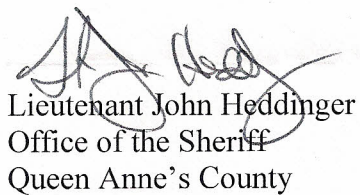 Lieutenant John Heddinger
Office of the Sheriff
Queen Anne's County